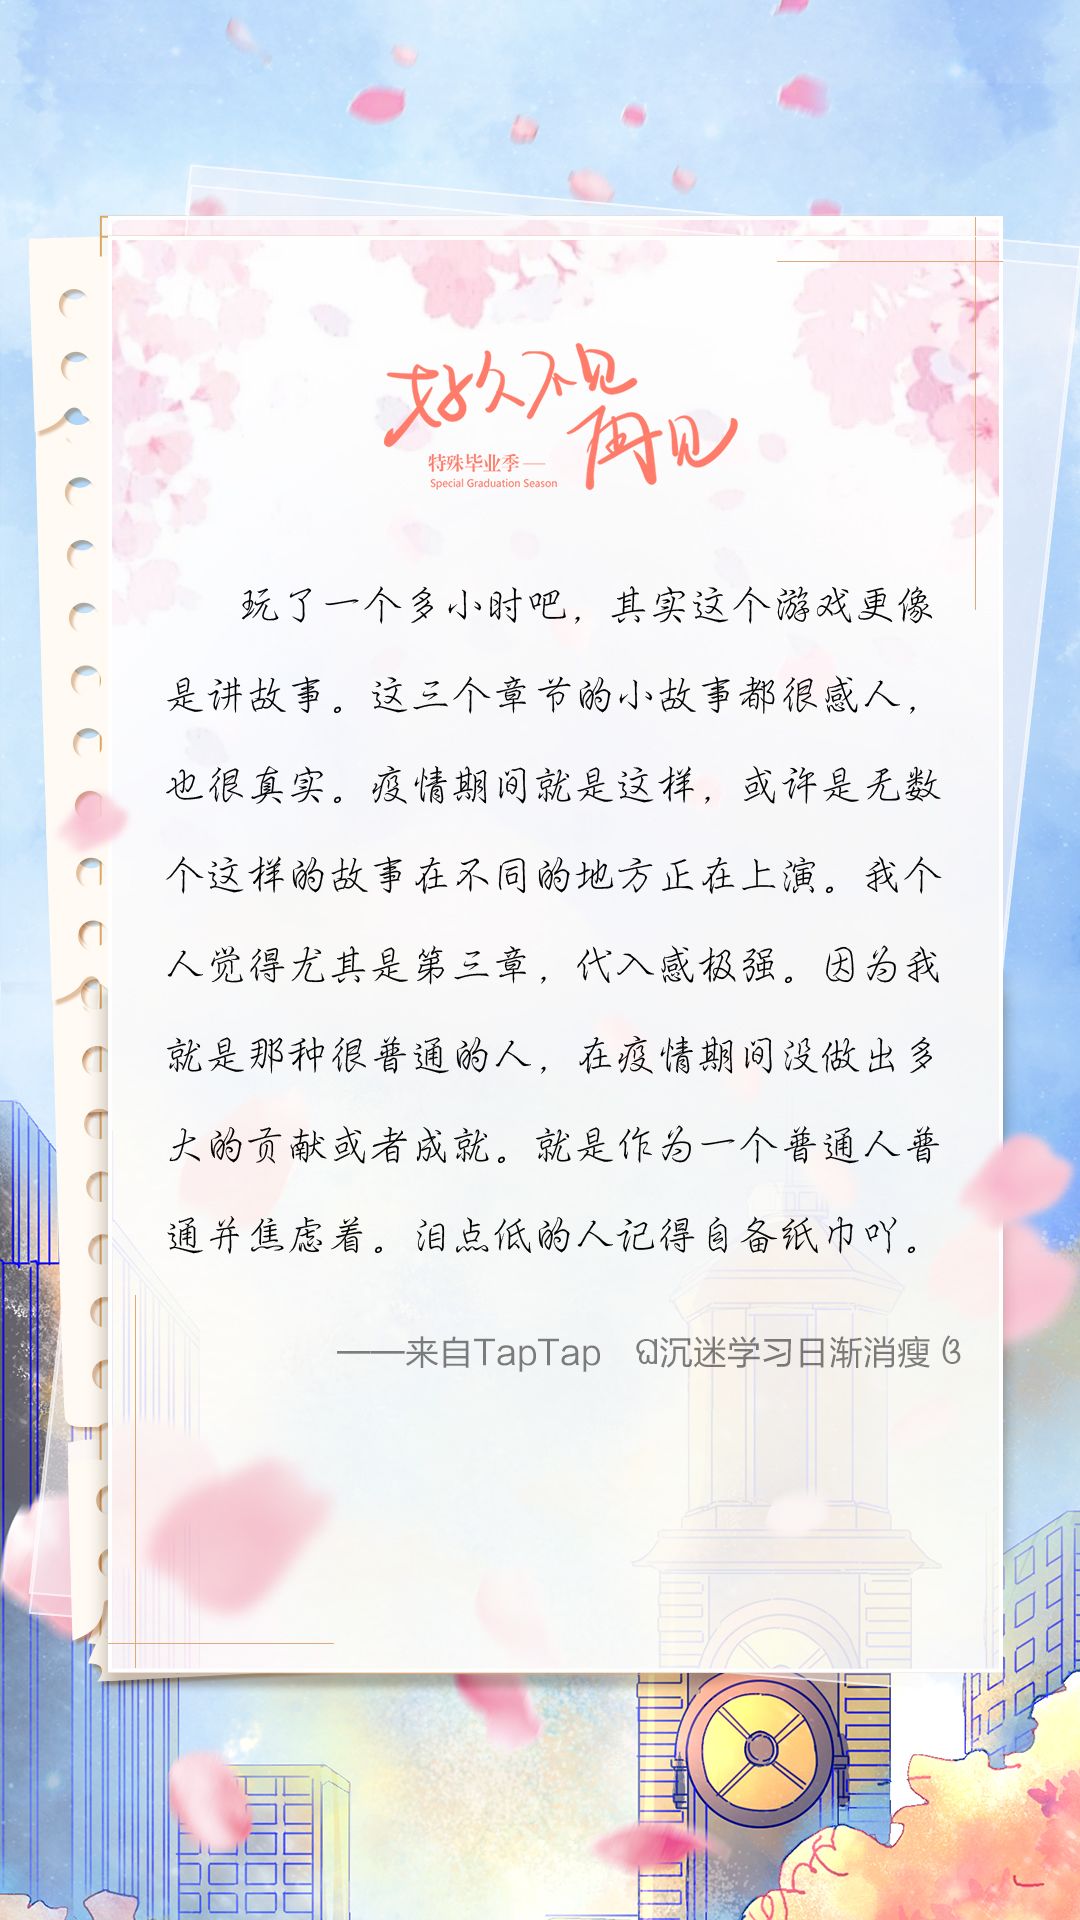 好久不见
再见
特殊毕业季——
Special Graduation Season
玩了一个多小时吧，其实这个游戏更像
是讲故事。这三个章节的小故事都很感人，
也很真实。疫情期间就是这样，或许是无数
个这样的故事在不同的地方正在上演。我个
人觉得尤其是第三章，代入感极强。因为我
就是那种很普通的人，在疫情期间没做出多
大的贡献或者成就。就是作为一个普通人普
通并焦虑着。泪点低的人记得自备纸巾吖。
——来自TapTap 沉迷学习日渐消瘦